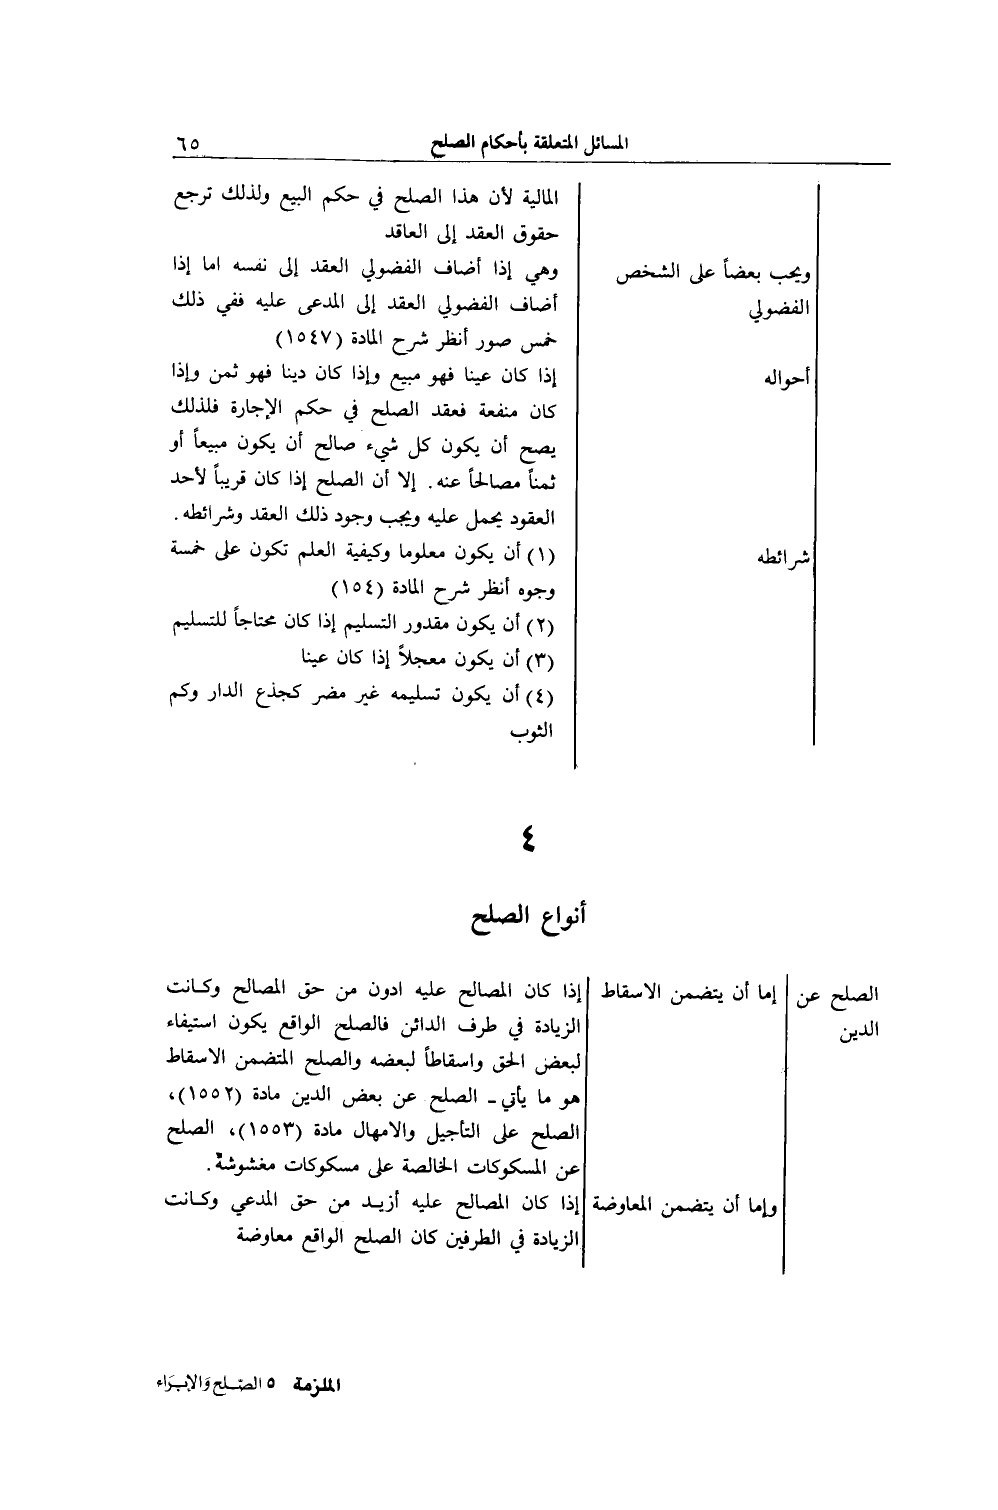 المسائل المتعلقة بأحكام الصلح ٦٥
المالية لأن هذا الصلح في حكم البيع ولذلك ترجع
حقوق العقد إلى العاقد
ويجب بعضاً على الشخص وهي إذا أضاف الفضولي العقد إلى نفسه اما إذا
الفضولي أضاف الفضولي العقد إلى المدعى عليه ففي ذلك
خمس صور أنظر شرح المادة (١٥٤٧)
أحواله إذا كان عينا فهو مبيع وإذا كان دينا فهو ثمن وإذا
كان منفعة فعقد الصلح في حكم الإجارة فلذلك
يصح أن يكون كل شيء صالح أن يكون مبيعاً أو
ثمناً مصالحاً عنه. إلا أن الصلح إذا كان قريباً لأحد
العقود يحمل عليه ويجب وجود ذلك العقد وشرائطه.
شرائطه (١) أن يكون معلوما وكيفية العلم تكون على خمسة
وجوه أنظر شرح المادة (١٥٤)
(٢) أن يكون مقدور التسليم إذا كان محتاجاً للتسليم
(٣) أن يكون معجلاً إذا كان عينا
(٤) أن يكون تسليمه غير مضر كجذع الدار وكم
الثوب
٤
أنواع الصلح
الصلح عن إما أن يتضمن الاسقاط إذا كان المصالح عليه ادون من حق المصالح وكانت
الدين الزيادة في طرف الدائن فالصلح الواقع يكون استيفاء
لبعض الحق واسقاطاً لبعضه والصلح المتضمن الاسقاط
هو ما يأتي - الصلح عن بعض الدين مادة (١٥٥٢)،
الصلح على التأجيل والامهال مادة (١٥٥٣)، الصلح
عن المسكوكات الخالصة على مسكوكات مغشوشة.
وإما أن يتضمن المعاوضة إذا كان المصالح عليه أزيد من حق المدعي وكانت
الزيادة في الطرفين كان الصلح الواقع معاوضة
الملزمة ٥ الصلح والابراء